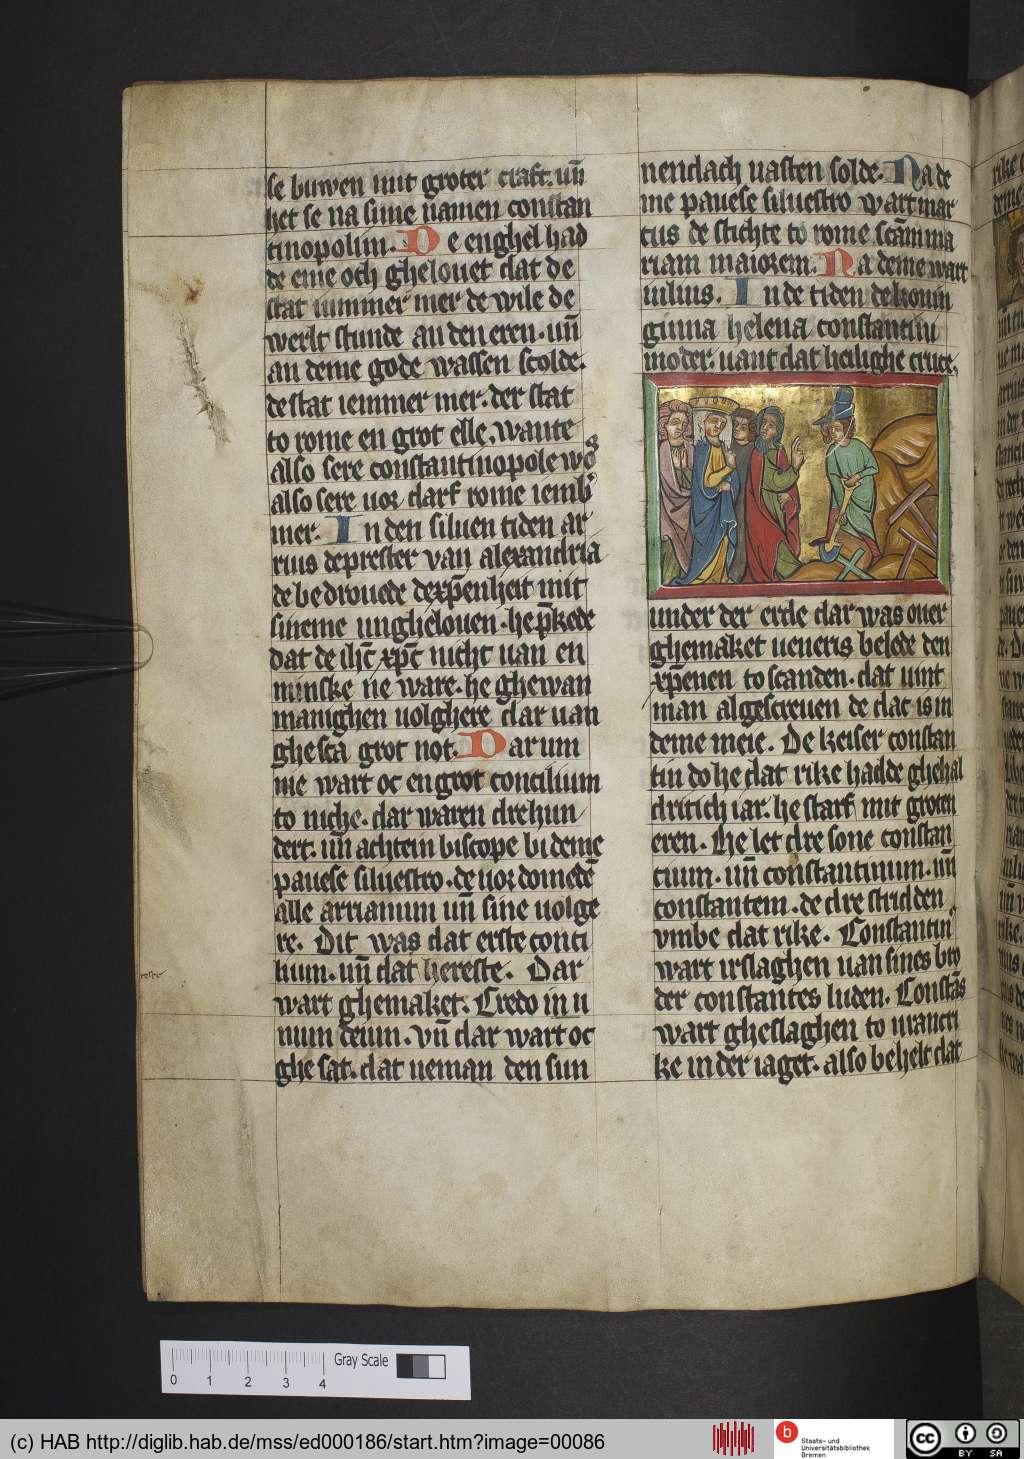 se buwen mit groter craft. un̄
het se na sime namen constan
tinopolim. De enghel had
de eme och ghelouet dat de
stat iummer mer de wile de
werlt stunde an den eren. un̄
an deme gode wassen scolde.
de stat iemmer mer. der stat
to rome en grot elle. wante
also sere constantinopole wos
also sere uor darf rome iem̄
mer. In den siluen tiden ar
rius de prester van alexandria
de bedrouede de xp̄enheit mit
sineme unghelouen. he p̄kede
dat de ih̄c xp̄c nicht uan en
minske ne ware. he ghewan
manighen uolghere dar uan
ghesca grot not. Dar um
me wart oc en grot concilium
to niche. dar waren drehun
dert. un̄ achtein biscope bi deme
pauese siluestro. de uordomedē
alle arrianum un̄ sine uolge
re. Dit was dat erste conci
lium. un̄ dat hereste. Dar
wart ghemaket. Credo in u
num deum. vn̄ dar wart oc
ghesat. dat neman den sun
nendach uasten solde. Na de
me pauese siluestro wart mar
cus de stichte to rome scām ma
riam maiorem. Na deme wart
iulius. In de tiden de konin
ginna helena constantini
moder. uant dat heilighe cruce.
under der erde dar was ouer
ghemaket ueneris belede den
xp̄enen to scanden. dat uint
man al gescreuen de dat is in
deme meie. De keiser constan
tin do he dat rike hadde ghehal
dritich iar. he starf mit groten
eren. He let dre sone constan
cium. un̄ constantinum. un̄
constantem. de dre stridden
vmbe dat rike. Constantin
wart irslaghen uan sines bro
der constantes luden. Constās
wart gheslaghen to urancri
ke in der iaget. also behelt dat
0 1 2 3 4
Gray Scale
(c) HAB http://diglib.hab.de/mss/ed000186/start.htm?image=00086
b
Staats- und
Universitätsbibliothek
Bremen
cc
BY SA